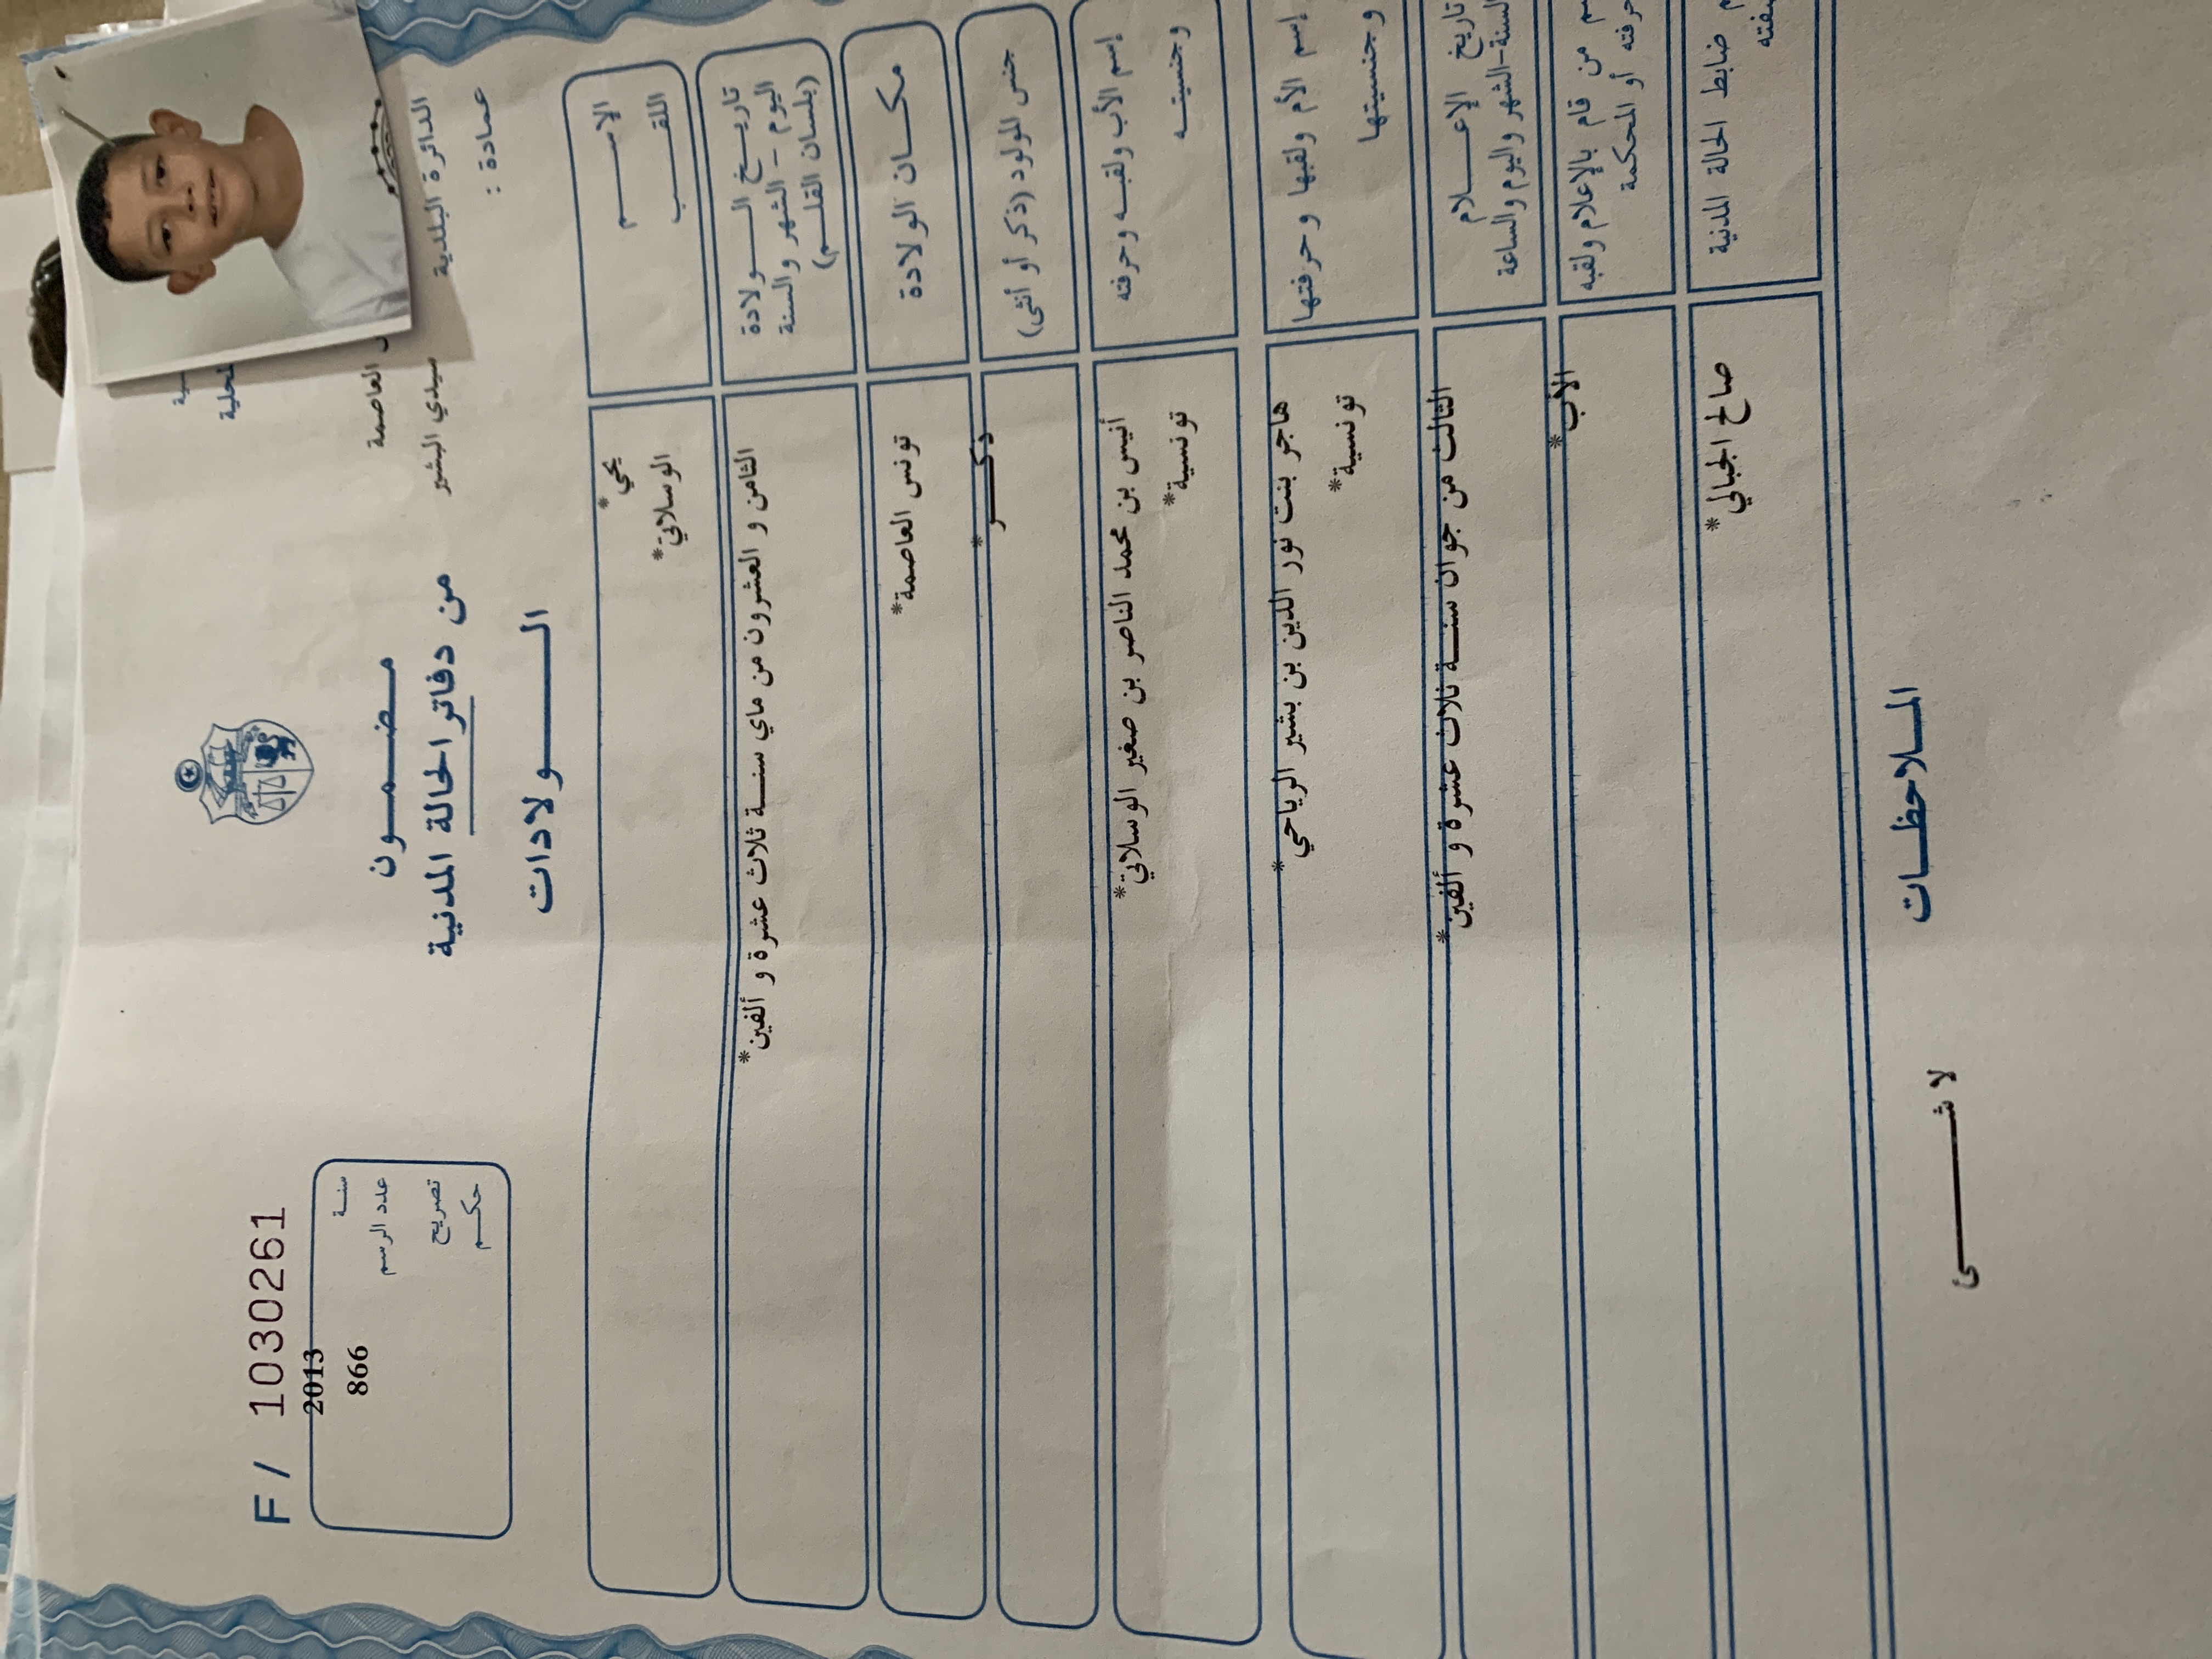 F / 1030261
سنة 2013
عدد الرسم 866
تصريح
حكم
مضمون
من دفاتر الحالة المدنية
الولادات
العاصمة
الدائرة البلدية سيدي البشير
عمادة :
الاسم يحي*
اللقب الوسلاتي*
تاريخ الولادة الثامن و العشرون من ماي سنة ثلاث عشرة و ألفين*
اليوم - الشهر والسنة
(بلسان القلم)
مكان الولادة تونس العاصمة*
جنس المولود (ذكر أو أنثى) ذكر*
إسم الأب ولقبه وحرفته أنيس بن محمد الناصر بن صغير الوسلاتي*
وجنسيته تونسية*
إسم الأم ولقبها وحرفتها هاجر بنت نور الدين بن بشير الرياحي*
وجنسيتها تونسية*
تاريخ الإعلام الثالث من جوان سنة ثلاث عشرة و ألفين*
السنة-الشهر واليوم والساعة
من قام بالإعلام ولقبه الأب*
حرفته أو المحكمة
ضابط الحالة المدنية صالح الجبالي*
الملاحظات
لا شئ